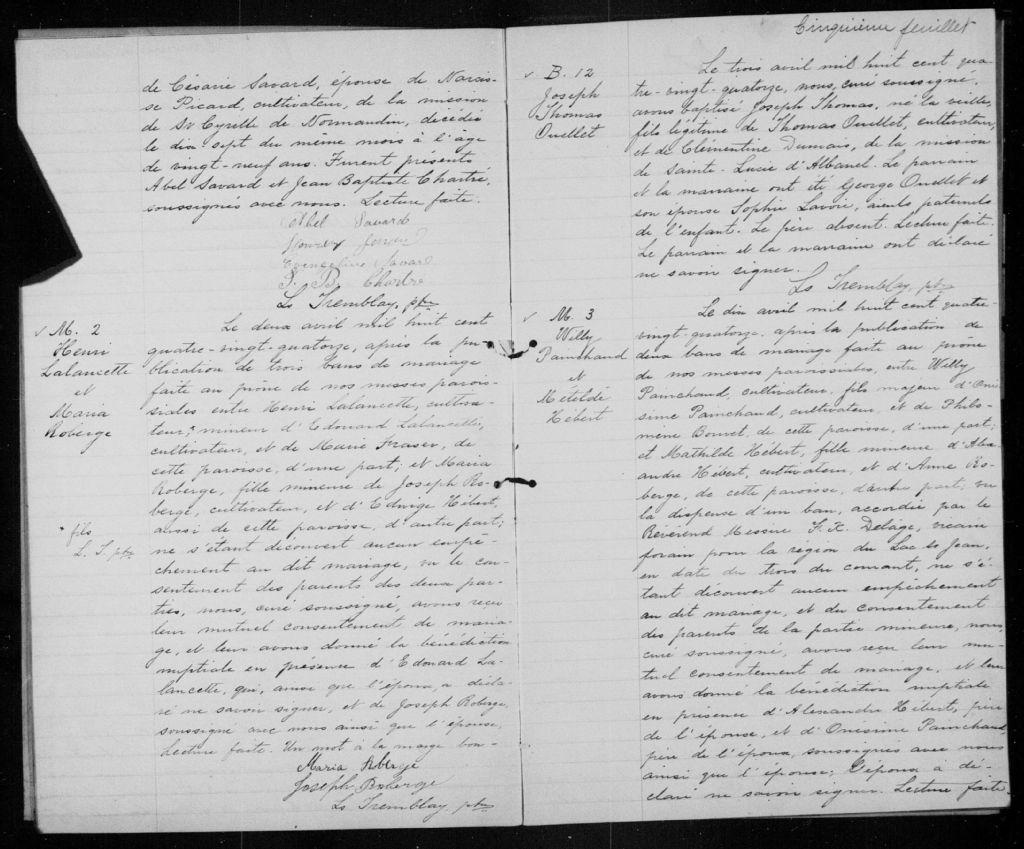 de Césarie Savard, épouse de Narcis-
se Picard, cultivateur, de la mission
de St Cyrille de Normandin, décédée
le dix sept du même mois à l'âge
de vingt-neuf ans. Furent présents
Abel Savard et Jean Baptiste Chartré,
soussignés avec nous. Lecture faite.
Abel Savard
Evangeline Savard
J. B. Chartré
Ls Tremblay, ptre
√ M. 2
Henri
Lalancette
et
Maria
Roberge
Le deux avril mil huit cent
quatre-vingt-quatorze, après la pu-
blication de trois bans de mariage
faite au prône de nos messes parois-
siales entre Henri Lalancette, cultiva-
teur, mineur d'Edouard Lalancette,
cultivateur, et de Marie Fraser, de
cette paroisse, d'une part; et Maria
Roberge, fille mineure de Joseph Ro-
berge, cultivateur, et d'Edwige Hébert,
aussi de cette paroisse, d'autre part;
* fils
L. T. ptre
ne s'étant découvert aucun empê-
chement au dit mariage, vu le con-
sentement des parents des deux par-
ties, nous, curé soussigné, avons reçu
leur mutuel consentement de maria-
ge, et leur avons donné la bénédiction
nuptiale en présence d'Edouard La-
lancette, qui, ainsi que l'époux, a décla-
ré ne savoir signer, et de Joseph Roberge,
soussigné avec nous ainsi que l'épouse,
Lecture faite. Un mot à la marge bon-
Maria Roberge
Joseph Roberge
Ls Tremblay ptre
Cinquième feuillet
√ B. 12
Joseph
Thomas
Ouellet
Le trois avril mil huit cent qua-
tre-vingt-quatorze, nous, curé soussigné,
avons baptisé Joseph Thomas, né la veille,
fils légitime de Thomas Ouellet, cultivateur,
et de Clémentine Dumais, de la mission
de Sainte-Lucie d'Albanel. Le parrain
et la marraine ont été George Ouellet et
son épouse Sophie Lavoie, aieuls paternels
de l'enfant. Le père absent. Lecture faite.
Le parrain et la marraine ont déclaré
ne savoir signer.
Ls Tremblay, ptre
√ M. 3
Willy
Painchaud
et
Métildé
Hébert
Le dix avril mil huit cent quatre-
vingt-quatorze, après la publication de
deux bans de mariage faite au prône
de nos messes paroissiales, entre Willy
Painchaud, cultivateur, fils majeur d'Oné-
sime Painchaud, cultivateur, et de Philo-
mène Bouvet, de cette paroisse, d'une part;
et Mathilde Hébert, fille mineure d'Alex-
andre Hébert, cultivateur, et d'Anne Ro-
berge, de cette paroisse, d'autre part; vu
la dispense d'un ban, accordée par le
Révérend Messire F. X. Delâge, vicaire
forain pour la région du Lac St Jean,
en date du trois du courant, ne s'é-
tant découvert aucun empêchement
au dit mariage, et du consentement
des parents de la partie mineure, nous,
curé soussigné, avons reçu leur mu-
tuel consentement de mariage, et leur
avons donné la bénédiction nuptiale
en présence d'Alexandre Hébert, père
de l'épouse, et d'Onésime Painchaud
père de l'époux, soussignés avec nous
ainsi que l'épouse; l'époux a dé-
claré ne savoir signer. Lecture faite.